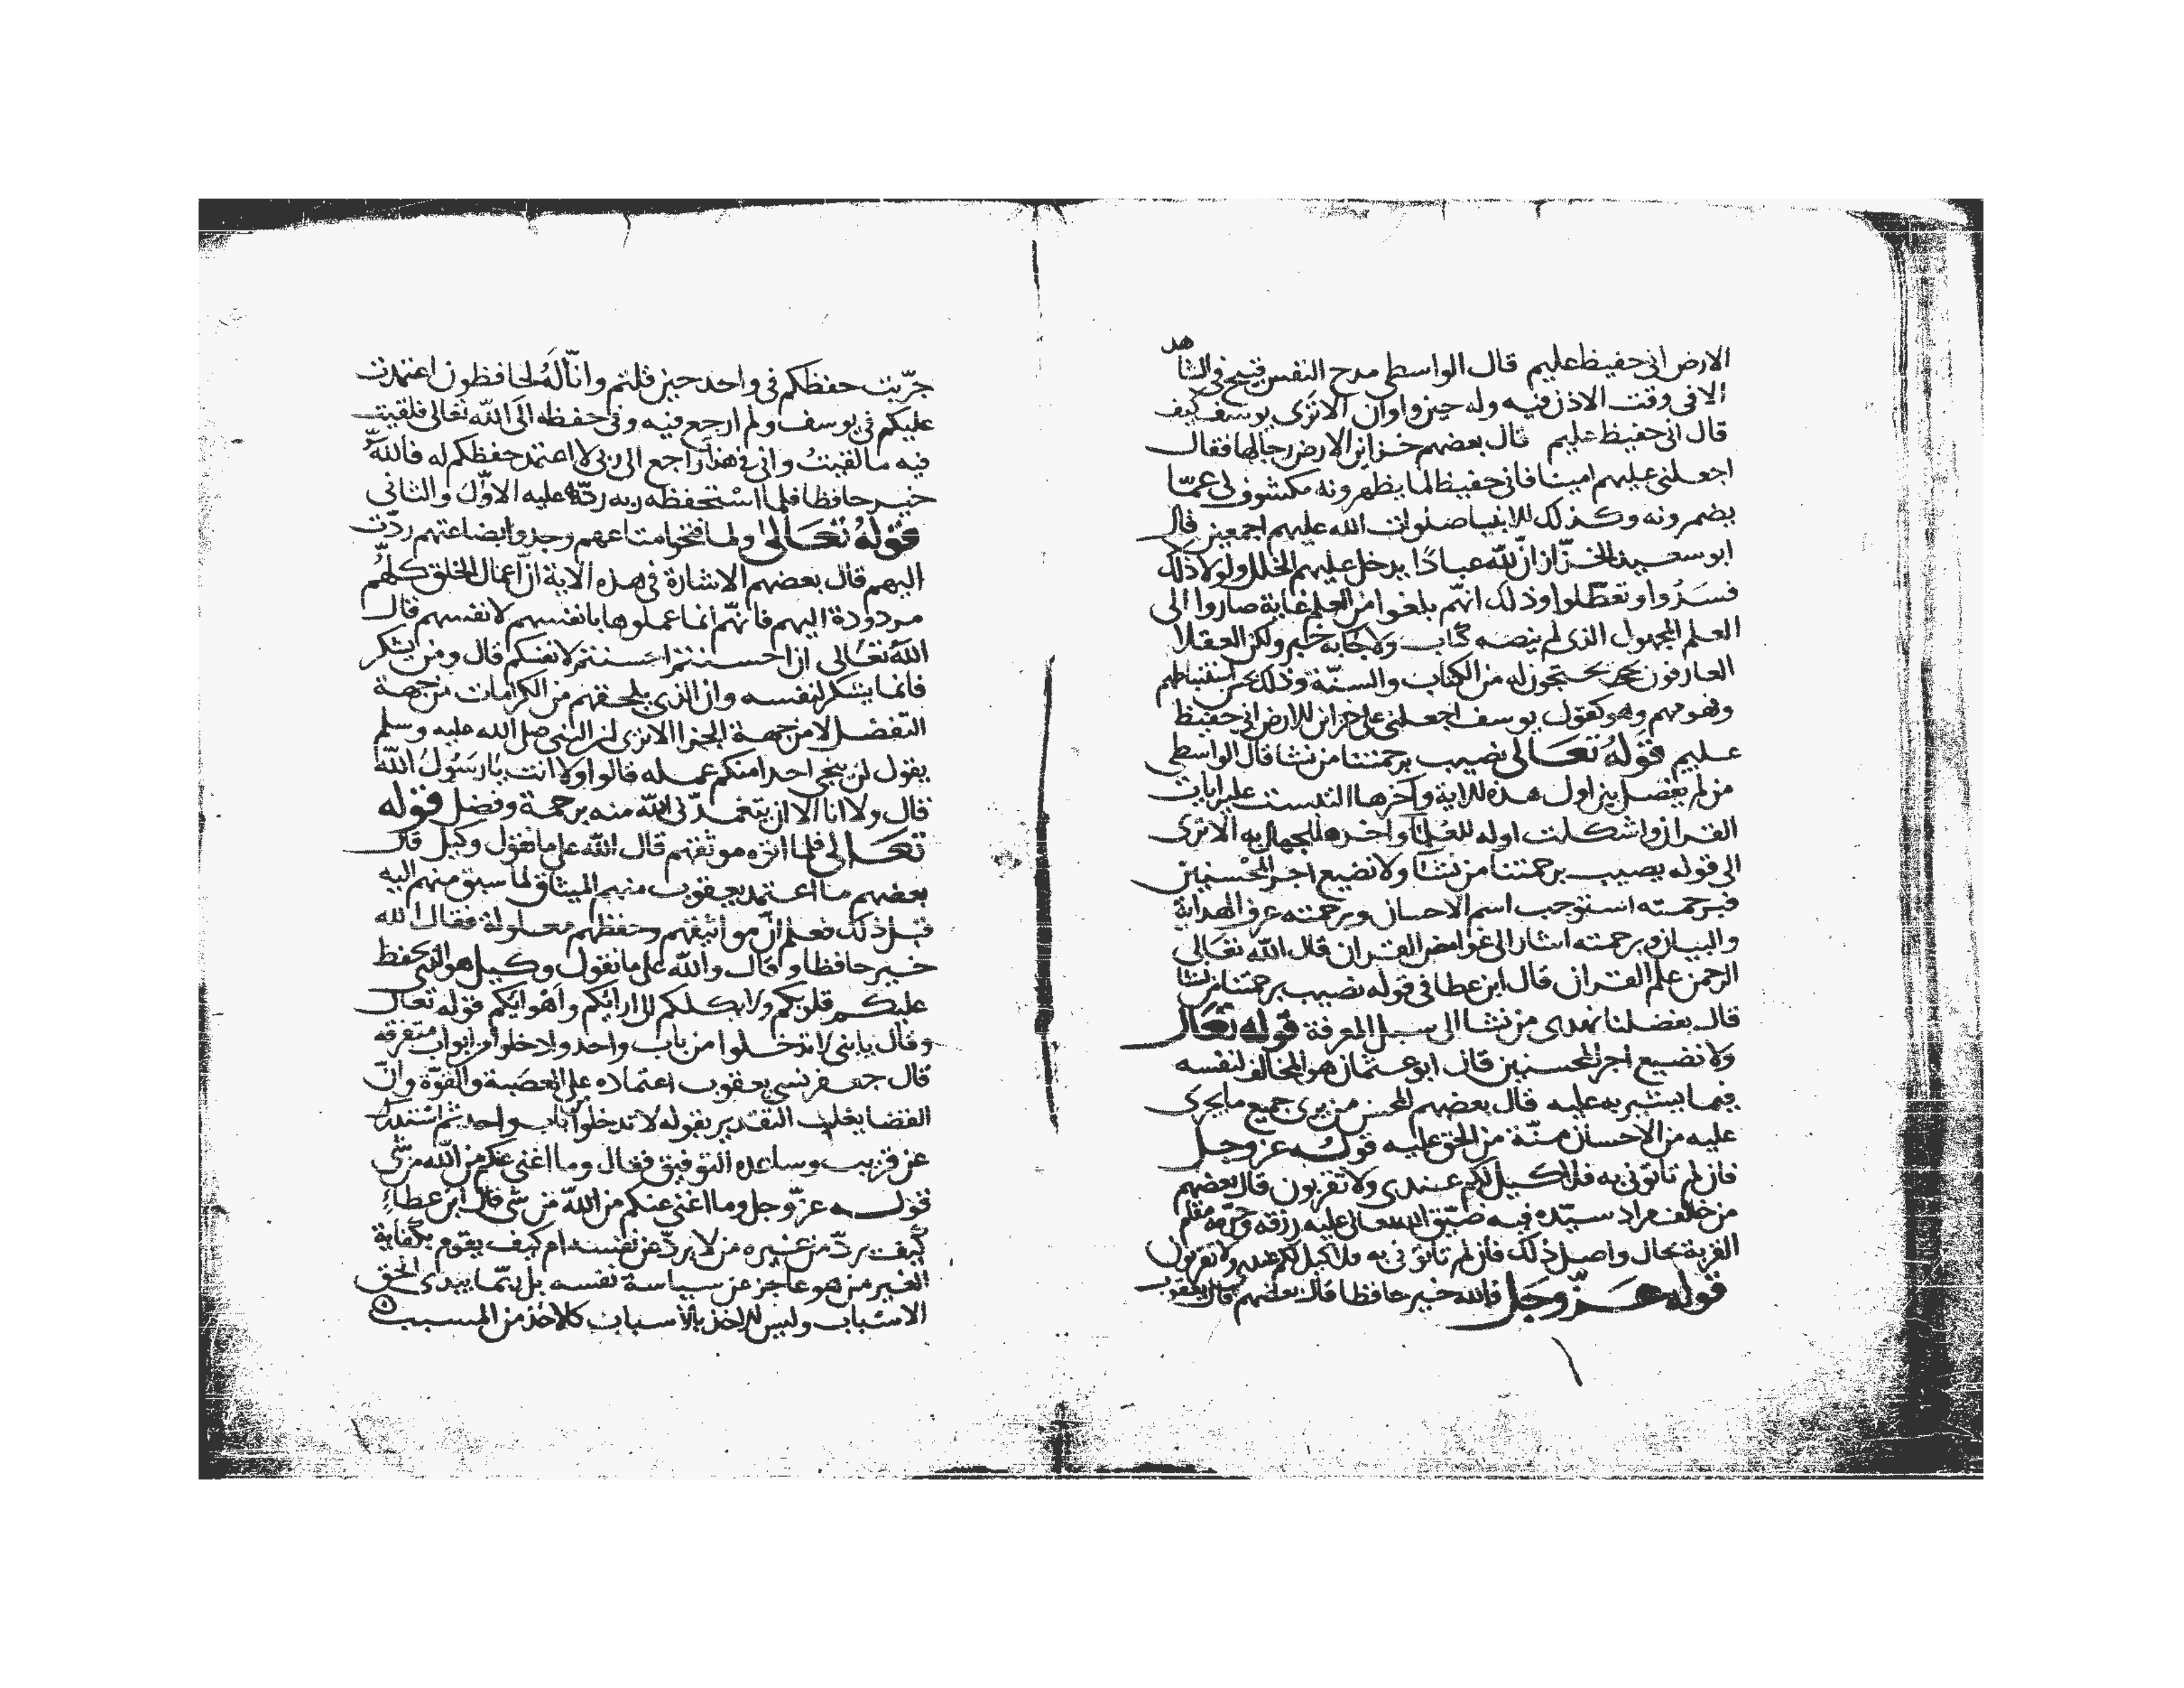 الارض انى حفيظ عليم قال الواسطى مدح النفس قبيح فى الشاهد
الا فى وقت الاذن فيه وله حين واوان الا ترى يوسف كيف
قال انى حفيظ عليم قال بعضهم خزاين الارض رجالها فقال
اجعلنى عليهم امينا فانى حفيظ لما يظهرونه مكشوف لى عمّا
يضمرونه وكذلك للانبيا صلوات الله عليهم اجمعين قال
ابو سعيد الخرّاز انّ لله عبادًا يدخل عليهم الخلل ولولا ذلك
فسدوا وتعطّلوا وذلك انهّم بلغوا من العلم غاية صاروا الى
العلم المجهول الذى لم ينصه كتاب ولا جابه خبر ولكن العقلا
العارفون يحتجون له من الكتاب والسنّة وذلك بحسن استنباطهم
وفهومهم وهو كقول يوسف اجعلنى على خزاين الارض انى حفيظ
عليم قوله تعالى نصيب برحمتنا من نشا قال الواسطى
من لم يفصل بين اول هذه الاية وآخرها التبست عليه ايات
القران واشكلت اوله للعلمآ واخره للجهال به الا ترى
الى قوله نصيب برحمتنا من نشآ ولا نضيع اجر المحْسنين
فبرحمته استوجب اسم الاحسان وبرحمته عرف الهداية
والبيان وبرحمته اشار الى غوامض القران قال الله تعالى
الرحمن علم القران قال ابن عطا فى قوله نصيب برحمتنا من نشا
قال بفضلنا نهدى من نشا الى سبيل المعرفة قوله تعالى
ولا نضيع اجر المحسنين قال ابو عثمان هو المخالف لنفسه
فيما يشير به عليه قال بعضهم المحسن من يرى جميع ما يجرى
عليه من الاحسان منّة من الحق عليه قوله عز وجل
فان لم تاتونى به فلا كيل لكم عندى ولا تقربون قال بعضهم
من خالف مراد سيّده فيه ضيّق الله تعالى عليه رزقه وحرّمه مقام
القربة بحال واصل ذلك فان لم تاتونى به فلا كيل لكم عندى ولا تقربون
قوله عزّ وجل فالله خير حافظا قال بعضهم قال يعقوب
جرّبت حفظكم فى واحد حين قلتم وانّا لَهُ لحافظون اعتمدت
عليكم فى يوسف ولم ارجع فيه وفى حفظه الى الله تعالى فلقيت
فيه ما لقيتُ وانى فى هذا راجع الى ربى لا اعتمد حفظكم له فالله
خير حافظا فلما اسْتحفظه ربه ردّه عليه الاوّل والثانى
قوله تعالى ولما فتحوا متاعهم وجدوا بضاعتهم ردّت
اليهم قال بعضهم الاشارة فى هذه الاية انّ اعمال الخلق كلّهُم
مردودة اليهم فانهّم انما عملوها بانفسهم لانفسهم قال
الله تعالى ان احسنتم احسنتم لانفسكم قال ومن يشكر
فانما يشكر لنفسه وان الذى يلحقهم من الكرامات من جهة
التفضل لا من جهة الجزا الا ترى ان النبى صلى الله عليه وسلم
يقول لن ينجى احدا منكم عمله قالوا ولا انت يا رسولُ الله
قال ولا انا الا ان يتغمّدنى الله منه برحمة وفضل قوله
تعالى فلما اتوه موثقهم قال الله على ما نقول وكيل قال
بعضهم ما اعتمد يعقوب منهم الميثاق لما سبق منهم اليه
قبل ذلك فعلم انّ مواثيقهم وحفظهم معلولة فقال الله
خير حافظا وقال والله على ما نقول وكيل هو الذى يحفظ
عليكم قلوبكم ولا يكلكم الى ارائكم واهوائكم قوله تعالى
وقال يا بنى لا تدخلوا من باب واحد وادخلوا من ابواب متفرقه
قال جعفر نسى يعقوب اعتماده على العصَبة والقوّة وانّ
القضا يغلب التقدير بقوله لا تدخلوا من باب واحد ثم استدرك
عن قريب وساعده التوفيق فقال وما اغنى عنكم من الله من شى
قوله عزّ وجل وما اغنى عنكم من الله من شى قال ابن عطاء
كيف يردّ من غيره من لا يردّ عن نفسه ام كيف يقوم بكفاية
الغير من هو عاجز عن سياسة نفسه بل ربّما يبدى الحق
الاسباب وليس الاخذ بالاسباب كالاخذ من المسبب